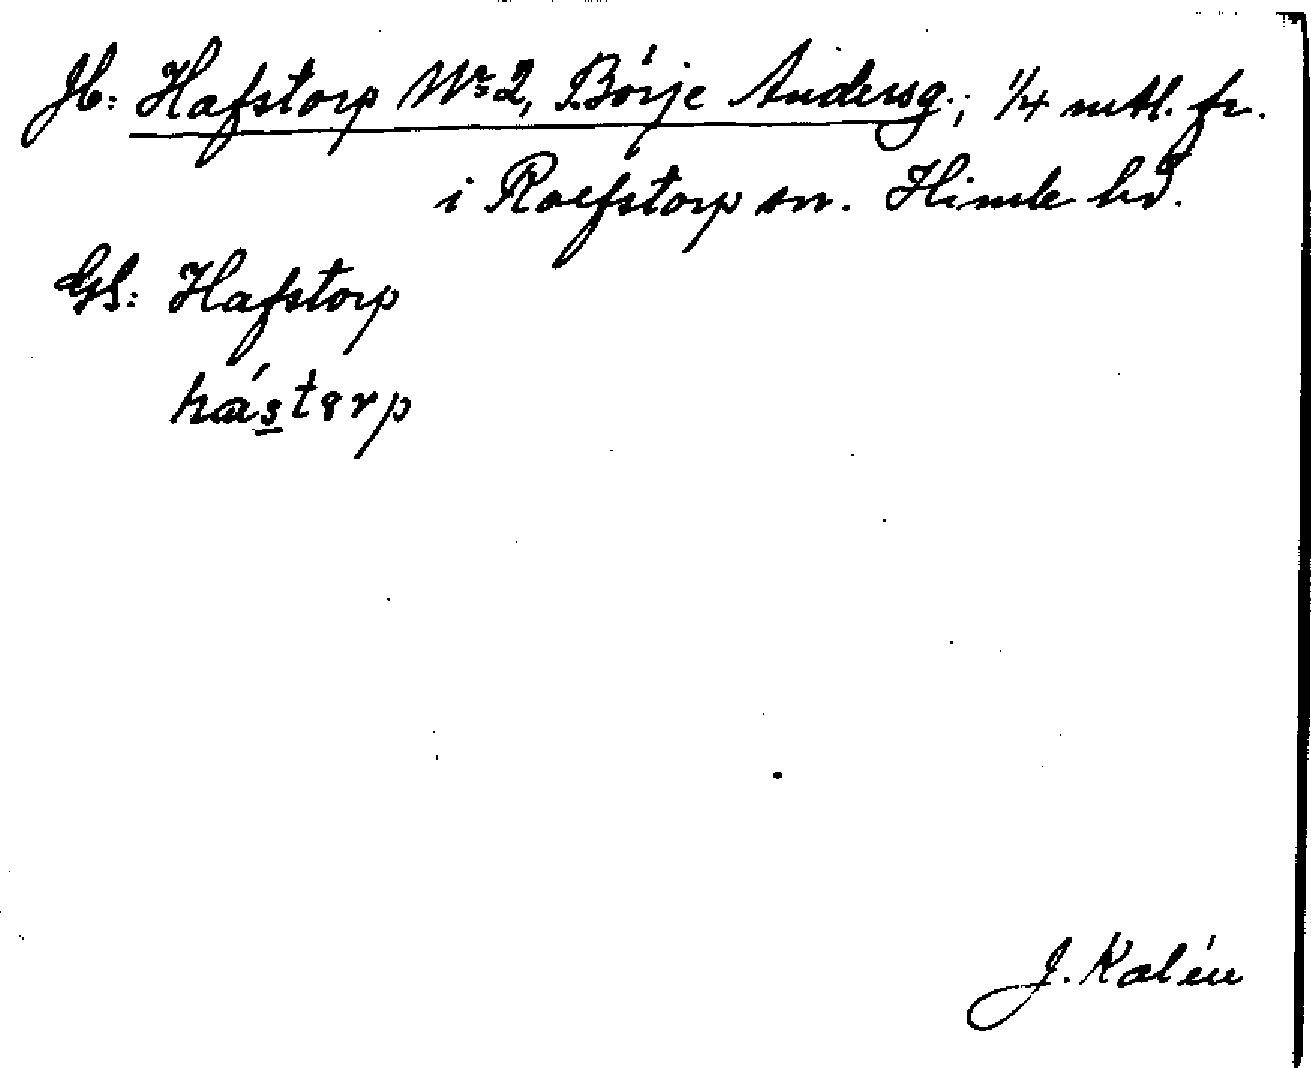 Jb: Hafstorp Nr 2, Börje Andersg.; 1/4 mtl. fr.
i Rolfstorp sn. Himle hd.
Gs: Hafstorp
hástørp
J. Kalén